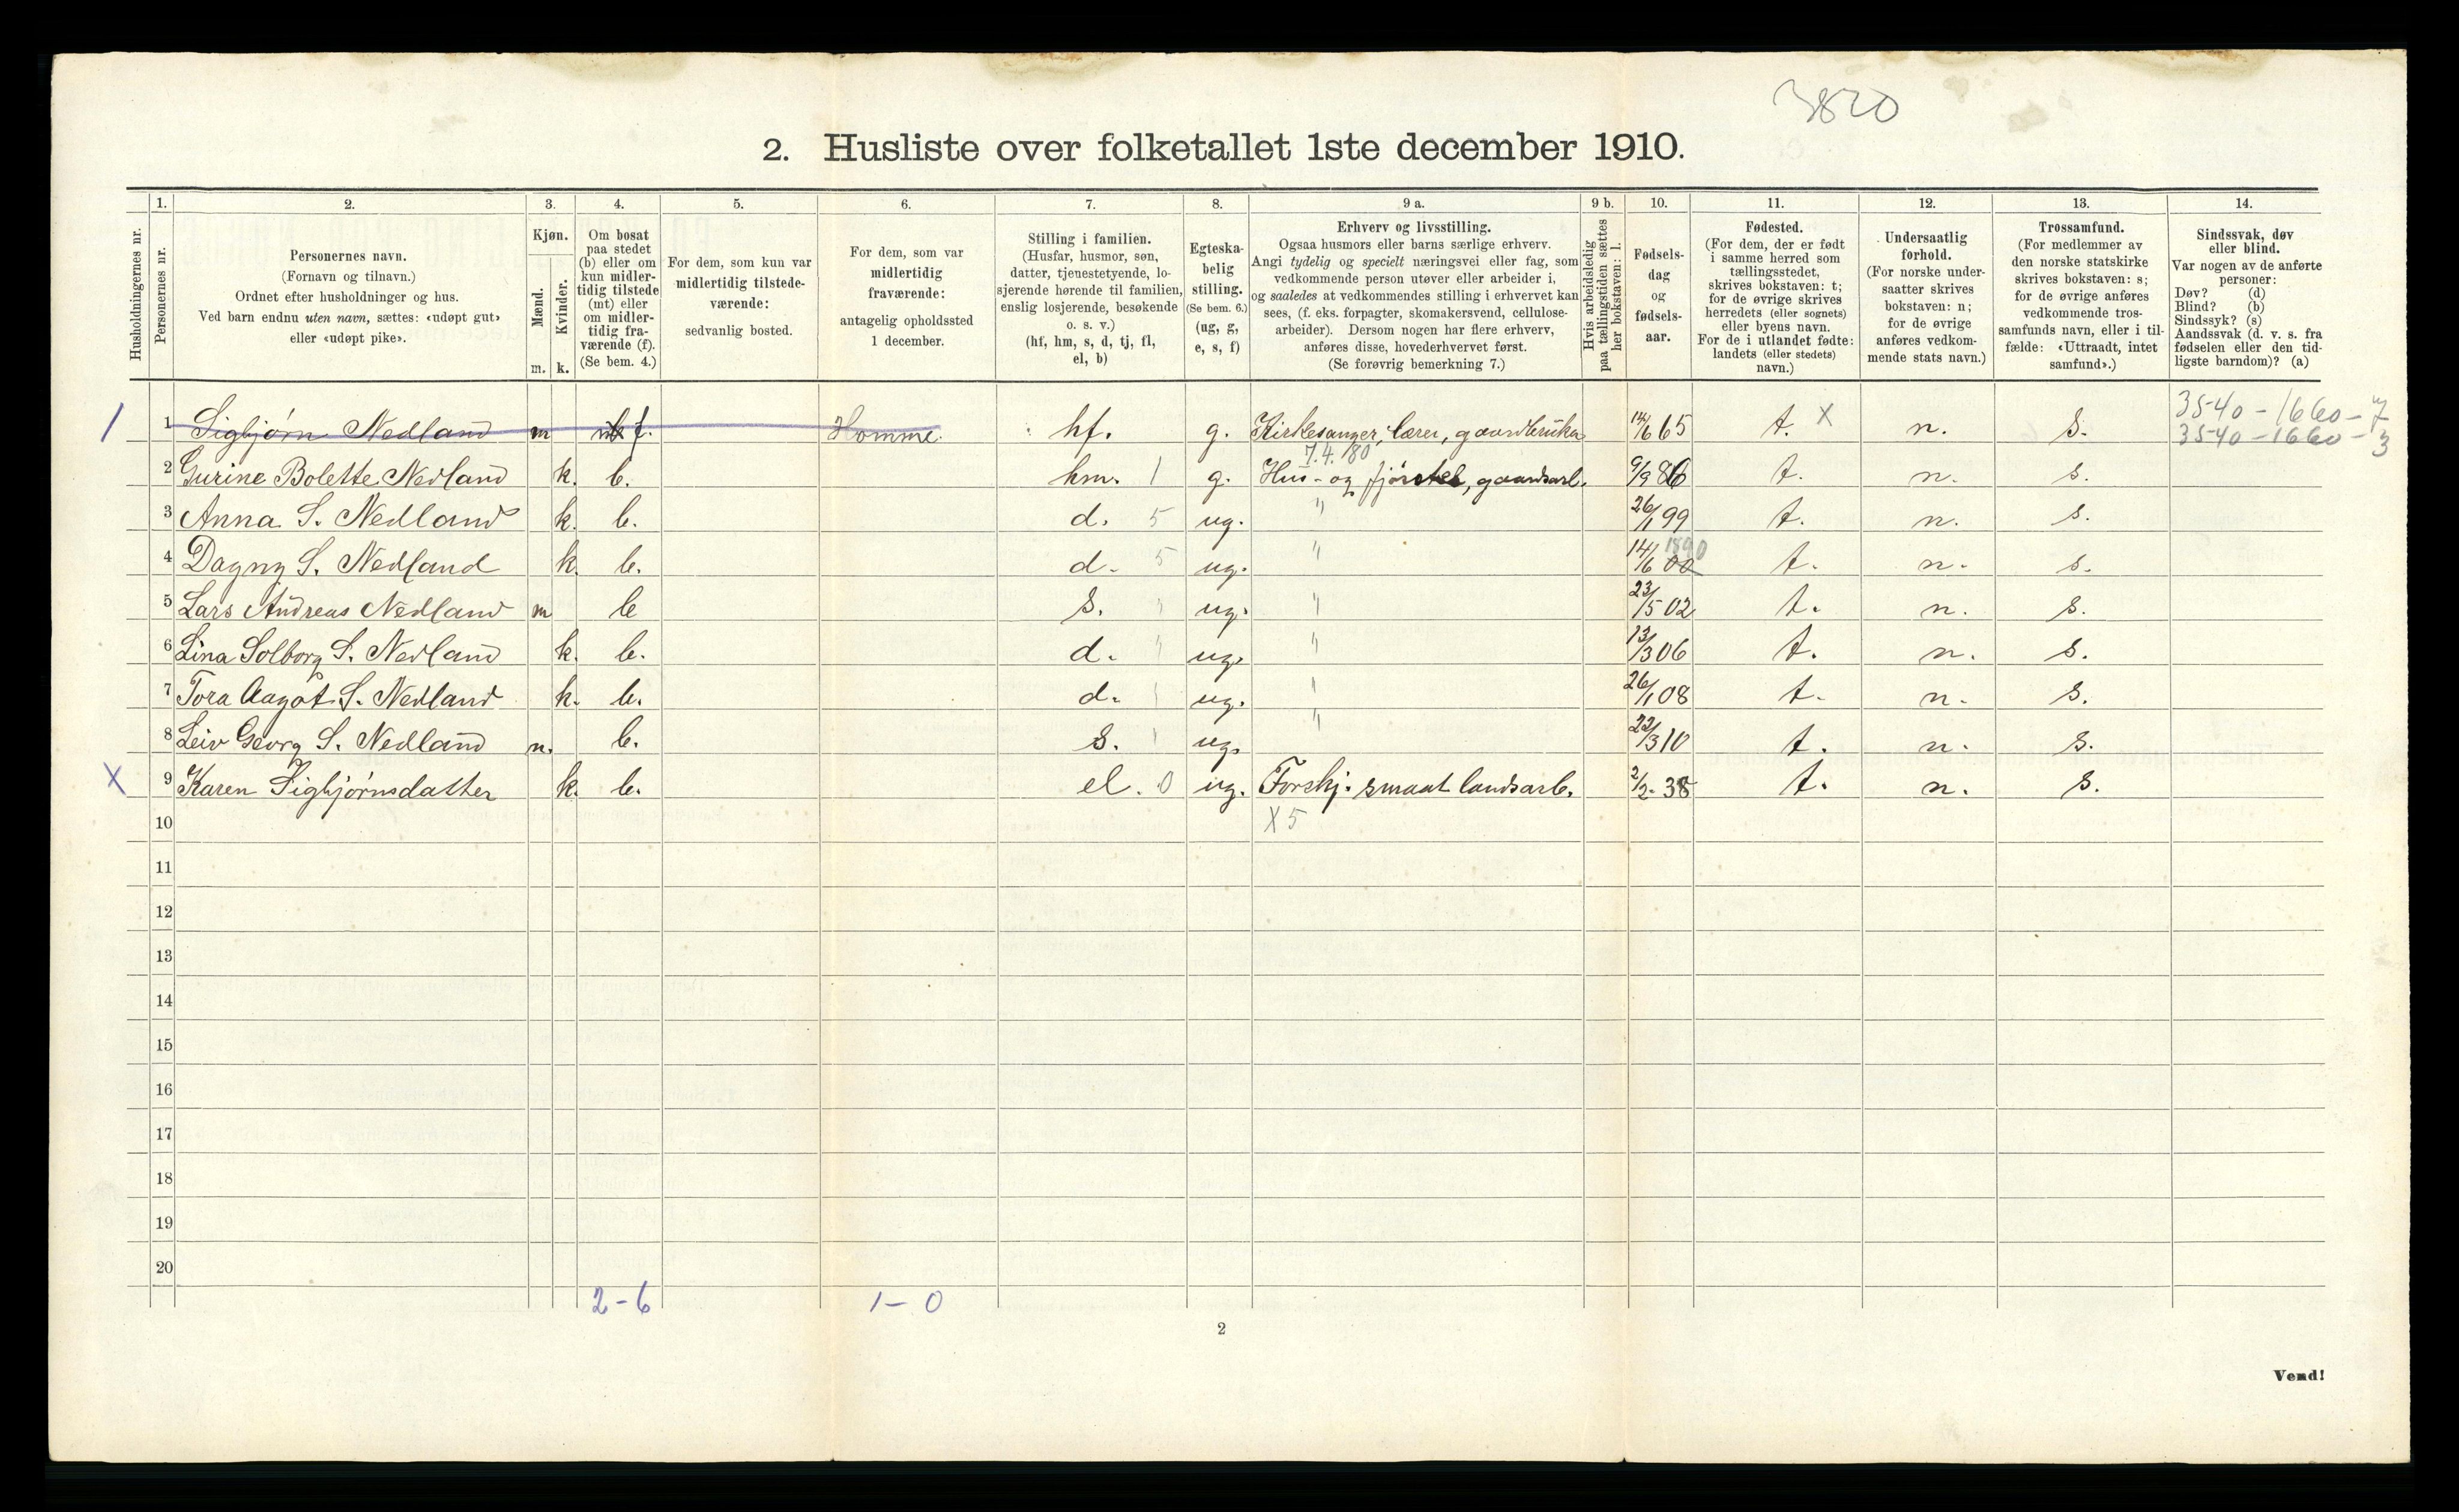 3820
2. Husliste over folketallet 1ste december 1910.
1. 2. 3. 4. 5. 6. 7. 8. 9 a. 9 b. 10. 11. 12. 13. 14.
Husholdningernes nr.
Personernes nr.
Personernes navn.
(Fornavn og tilnavn.)
Ordnet efter husholdninger og hus.
Ved barn endnu uten navn, sættes: «udøpt gut»
eller «udøpt pike».
Kjøn.
Mænd.
Kvinder.
m. k.
Om bosat
paa stedet
(b) eller om
kun midler-
tidig tilstede
(mt) eller
om midler-
tidig fra-
værende (f).
(Se bem. 4.)
For dem, som kun var
midlertidig tilstede-
værende:
sedvanlig bosted.
For dem, som var
midlertidig
fraværende:
antagelig opholdssted
1 december.
Stilling i familien.
(Husfar, husmor, søn,
datter, tjenestetyende, lo-
sjerende hørende til familien,
enslig losjerende, besøkende
o. s. v.)
(hf, hm, s, d, tj, fl,
el, b)
Egteska-
belig
stilling.
(Se bem. 6.)
(ug, g,
e, s, f)
Erhverv og livsstilling.
Ogsaa husmors eller barns særlige erhverv.
Angi tydelig og specielt næringsvei eller fag, som
vedkommende person utøver eller arbeider i,
og saaledes at vedkommendes stilling i erhvervet kan
sees, (f. eks. forpagter, skomakersvend, cellulose-
arbeider). Dersom nogen har flere erhverv,
anføres disse, hovederhvervet først.
(Se forøvrig bemerkning 7.)
Hvis arbeidsledig
paa tællingstiden sættes
her bokstaven: l.
Fødsels-
dag
og
fødsels-
aar.
Fødested.
(For dem, der er født
i samme herred som
tællingsstedet,
skrives bokstaven: t;
for de øvrige skrives
herredets (eller sognets)
eller byens navn.
For de i utlandet fødte:
landets (eller stedets)
navn.)
Undersaatlig
forhold.
(For norske under-
saatter skrives
bokstaven: n;
for de øvrige
anføres vedkom-
mende stats navn.)
Trossamfund.
(For medlemmer av
den norske statskirke
skrives bokstaven: s;
for de øvrige anføres
vedkommende tros-
samfunds navn, eller i til-
fælde: «Uttraadt, intet
samfund».)
Sindssvak, døv
eller blind.
Var nogen av de anførte
personer:
Døv? (d)
Blind? (b)
Sindssyk? (s)
Aandssvak (d. v. s. fra
fødselen eller den tid-
ligste barndom)? (a)
35-40-1660-7
/ 1 Sigbjørn Nedland m f. Homme hf. g. Kirkesanger, lærer, gaardbruker 14/6 65 t. X n. s. 35-40-1660-3
7.4.80
2 Gurine Bolette Nedland k. b. hm. 1 g. Hus- og fjørstel, gaardsarb. 9/9 86 t. n. s.
3 Anna S. Nedland k. b. d. 5 ug. " 26/1 99 t. n. s.
1890
4 Dagny S. Nedland k. b. d. 5 ug. " 14/6 00 t. n. s.
5 Lars Andreas Nedland m b s. " ug. " 23/5 02 t. n. s.
6 Lina Solborg S. Nedland k. b. d. " ug. " 13/3 06 t. n. s.
7 Tora Aagot S. Nedland k. b. d. ug. " 26/1 08 t. n. s.
8 Leiv Georg S. Nedland m. b. s. ug. " 22/3 10 t. n. s.
X 9 Karen Sigbjørnsdatter k. b. el. 0 ug. Forskj. smaat landsarb. 2/2-38 t. n. s.
10 X 5
11
12
13
14
15
16
17
18
19
20
2-6 1-0
2
Vend!